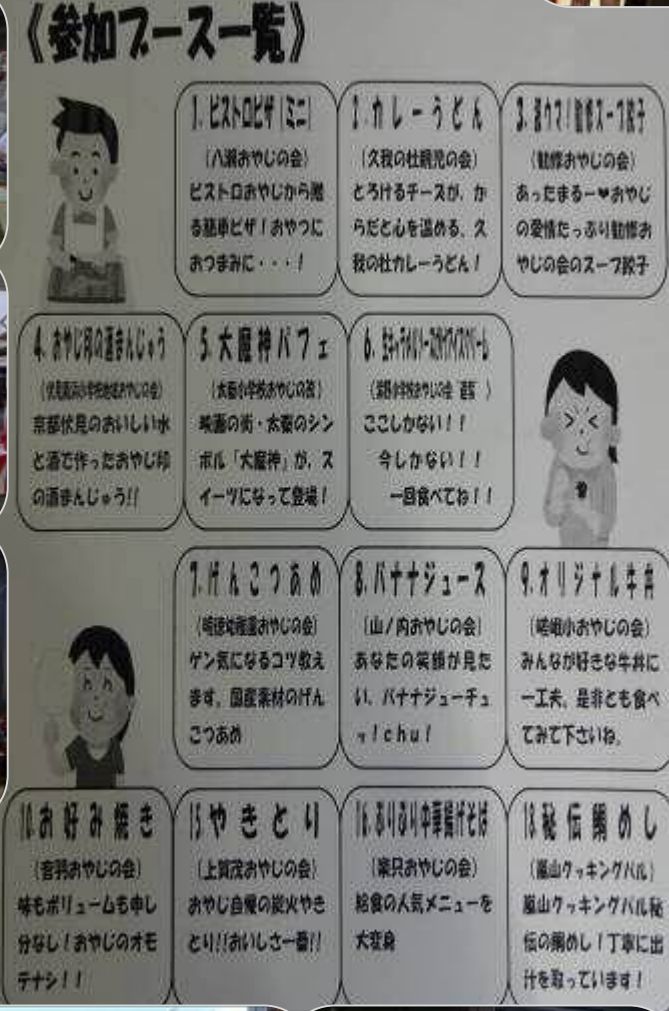 《参加ブース一覧》
1. ビストロピザ(ミニ)
(八瀬おやじの会)
ビストロおやじから贈
る簡単ピザ!おやつに
おつまみに・・・!
2. カレーうどん
(久我の杜親児の会)
とろけるチーズが、か
らだと心を温める、久
我の杜カレーうどん!
3. 激ウマ!勧修スープ餃子
(勧修おやじの会)
あったまるー♥おやじ
の愛情たっぷり勧修お
やじの会のスープ餃子
4. おやじ印の酒まんじゅう
京都伏見のおいしい水
と酒で作ったおやじ印
の酒まんじゅう!!
5. 大魔神パフェ
映画の街・太秦のシン
ボル「大魔神」が、ス
イーツになって登場!
6. 生キャラメルソースがけアイスクリーム
ここしかない!!
今しかない!!
一回食べてね!!
7. げんこつあめ
(明徳幼稚園おやじの会)
ゲン気になるコツ教え
ます。国産素材のげん
こつあめ
8. バナナジュース
(山ノ内おやじの会)
あなたの笑顔が見た
い、バナナジューチュ
ッ!chu!
9. オリジナル牛丼
(嵯峨小おやじの会)
みんなが好きな牛丼に
一工夫。是非とも食べ
てみて下さいね。
10. お好み焼き
(音羽おやじの会)
味もボリュームも申し
分なし!おやじのオモ
テナシ!!
15 やきとり
(上賀茂おやじの会)
おやじ自慢の炭火やき
とり!!おいしさ一番!!
16. ぷりぷり中華揚げそば
(楽只おやじの会)
給食の人気メニューを
大変身
18 秘伝鯛めし
(嵐山クッキングパル)
嵐山クッキングパル秘
伝の鯛めし!丁寧に出
汁を取っています!